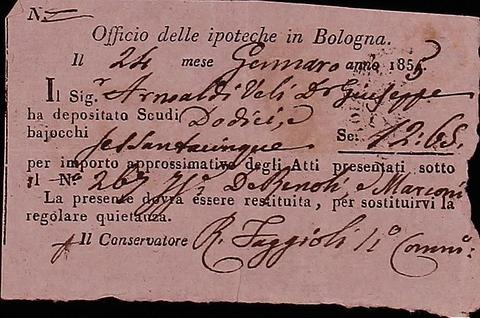 N.
Officio delle ipoteche in Bologna.
Il 24 mese Gennaro anno 1855
Il Sig.r Arnoaldi Veli Dr Giuseppe
ha depositato Scudi Dodici, e
bajocchi sessantacinque Sc: 12:65.
per importo approssimativo degli Atti presentati sotto
il N.o 267 e Marconi
La presente dovrà essere restituita, per sostituirvi la
regolare quietanza.
Il Conservatore R. Faggioli